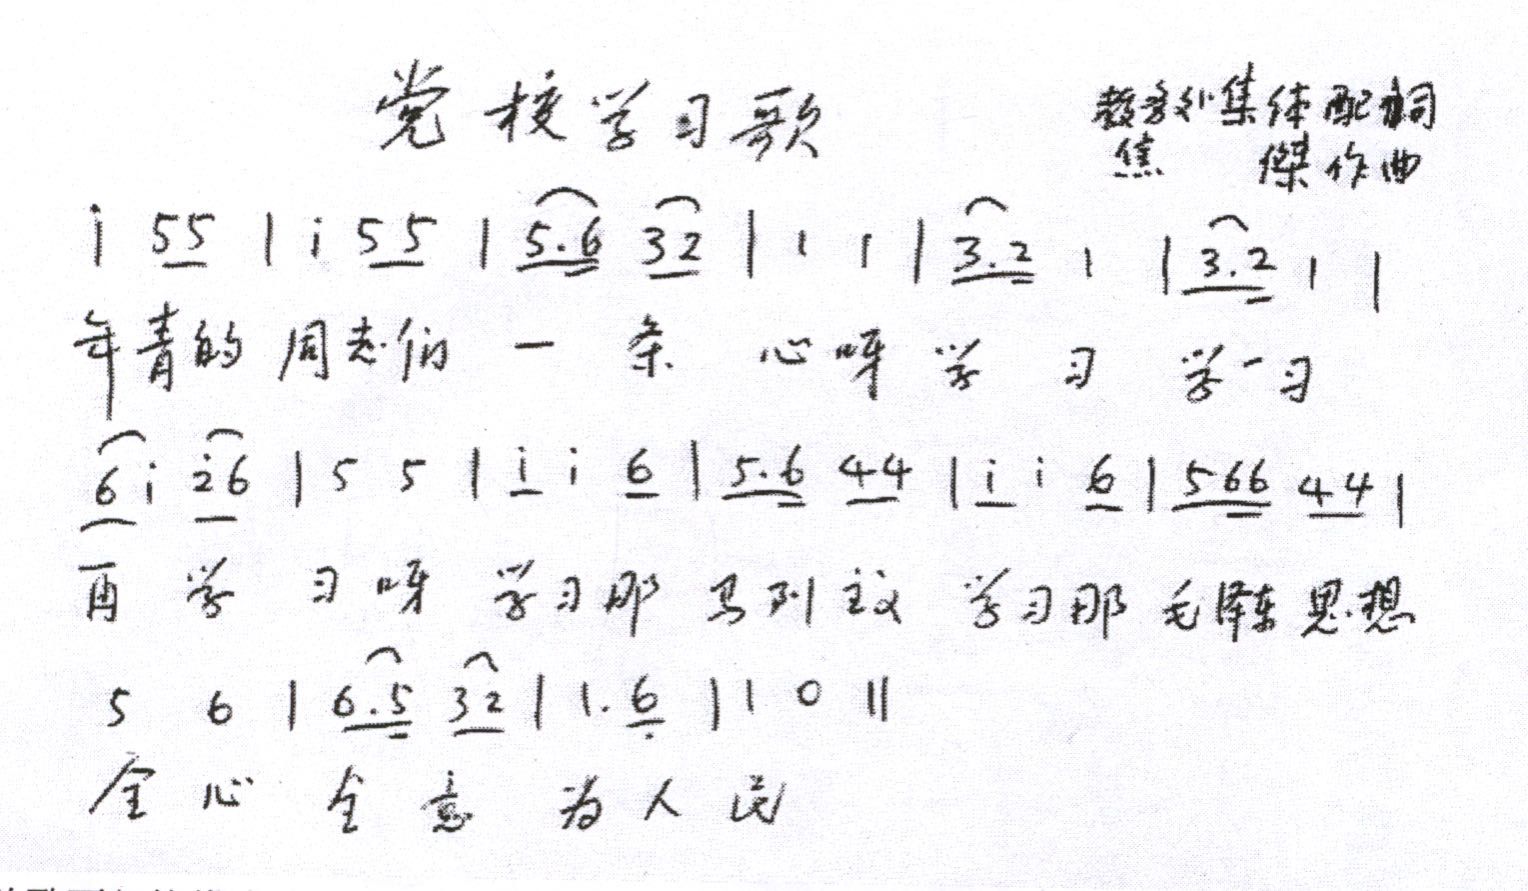 党校学习歌
教务处集体配词
焦 傑作曲
i 55 | i 55 | 5.6 32 | 1 1 | 3.2 1 | 3.2 1 |
年青的同志们一条心呀学习学一习
6i i6 | 5 5 | i i 6 | 5.6 44 | i i 6 | 566 44 |
再学习呀学习那马列主义学习那毛泽东思想
5 6 | 6.5 32 | 1. 6 | 1 0 ||
全心全意为人民